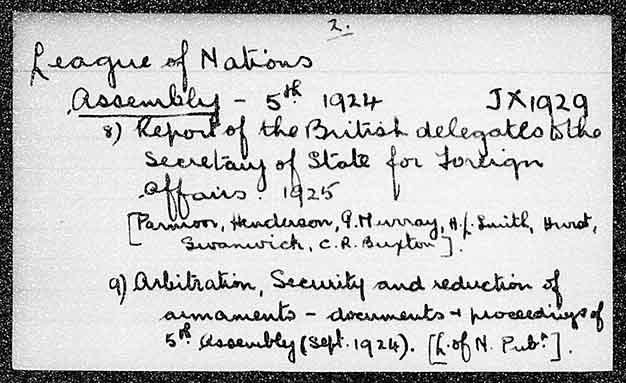 2.
League of Nations
Assembly - 5th 1924 JX1929
8) Report of the British delegates to the
Secretary of State for Foreign
Affairs. 1925
[Parmoor, Henderson, G. Murray, H. Ll. Smith, Hurst,
Swanwick, C.R. Buxton].
9) Arbitration, Security and reduction of
armaments - documents + proceedings of
5th Assembly (Sept. 1924). [L. of N. Pubn].